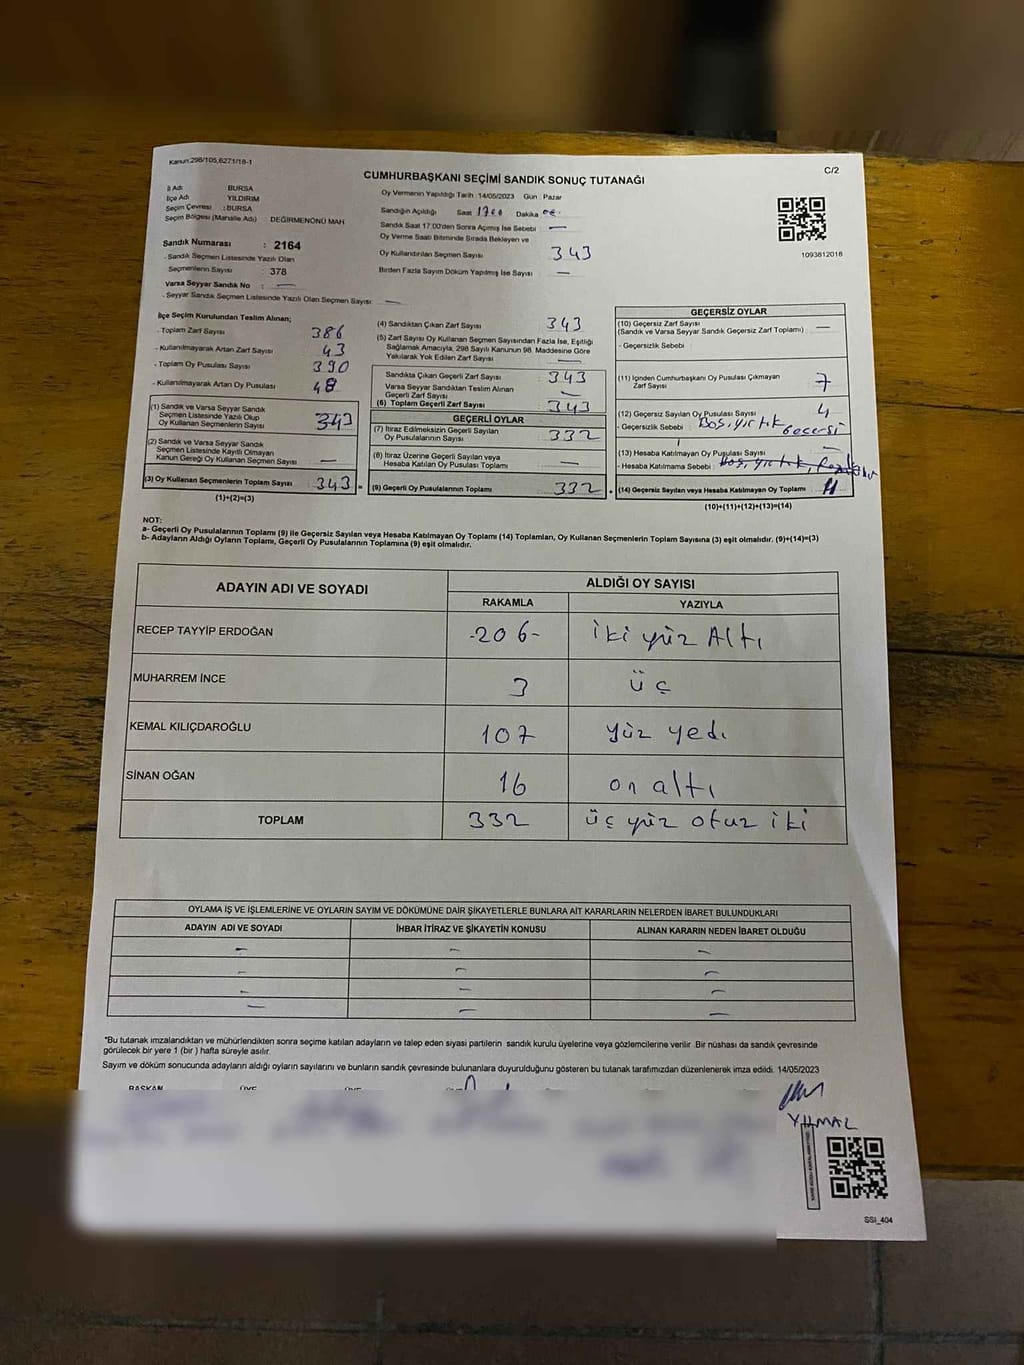 Kanun:298/105,6271/18-1
C/2
CUMHURBAŞKANI SEÇİMİ SANDIK SONUÇ TUTANAĞI
İl Adı BURSA
İlçe Adı YILDIRIM
Seçim Çevresi : BURSA
Seçim Bölgesi (Mahalle Adı) DEĞİRMENÖNÜ MAH
Sandık Numarası : 2164
- Sandık Seçmen Listesinde Yazılı Olan
Seçmenlerin Sayısı : 378
Varsa Seyyar Sandık No : —
- Seyyar Sandık Seçmen Listesinde Yazılı Olan Seçmen Sayısı: —
Oy Vermenin Yapıldığı Tarih :14/05/2023 Gün : Pazar
Sandığın Açıldığı Saat 1700 Dakika
Sandık Saat 17:00'den Sonra Açımış İse Sebebi —
Oy Verme Saati Bitiminde Sırada Bekleyen ve
Oy Kullandırılan Seçmen Sayısı 343
Birden Fazla Sayım Döküm Yapılmış İse Sayısı —
1093812018
İlçe Seçim Kurulundan Teslim Alınan;
- Toplam Zarf Sayısı 386
- Kullanılmayarak Artan Zarf Sayısı 43
- Toplam Oy Pusulası Sayısı 390
- Kullanılmayarak Artan Oy Pusulası 48
(1) Sandık ve Varsa Seyyar Sandık
Seçmen Listesinde Yazılı Olup
Oy Kullanan Seçmenlerin Sayısı 343
(2) Sandık ve Varsa Seyyar Sandık
Seçmen Listesinde Kayıtlı Olmayan
Kanun Gereği Oy Kullanan Seçmen Sayısı —
(3) Oy Kullanan Seçmenlerin Toplam Sayısı 343 =
(1)+(2)=(3)
(4) Sandıktan Çıkan Zarf Sayısı 343
(5) Zarf Sayısı Oy Kullanan Seçmen Sayısından Fazla İse, Eşitliği
Sağlamak Amacıyla, 298 Sayılı Kanunun 98. Maddesine Göre
Yakılarak Yok Edilen Zarf Sayısı —
Sandıkta Çıkan Geçerli Zarf Sayısı : 343
Varsa Seyyar Sandıktan Teslim Alınan
Geçerli Zarf Sayısı : —
(6) Toplam Geçerli Zarf Sayısı : 343
GEÇERLİ OYLAR
(7) İtiraz Edilmeksizin Geçerli Sayılan
Oy Pusulalarının Sayısı : 332
(8) İtiraz Üzerine Geçerli Sayılan veya
Hesaba Katılan Oy Pusulası Toplamı : —
(9) Geçerli Oy Pusulalarının Toplamı : 332 +
GEÇERSİZ OYLAR
(10) Geçersiz Zarf Sayısı :
(Sandık ve Varsa Seyyar Sandık Geçersiz Zarf Toplamı) —
- Geçersizlik Sebebi :
(11) İçinden Cumhurbaşkanı Oy Pusulası Çıkmayan
Zarf Sayısı : 7
(12) Geçersiz Sayılan Oy Pusulası Sayısı : 4
- Geçersizlik Sebebi : Boş, yırtık
(13) Hesaba Katılmayan Oy Pusulası Sayısı : —
- Hesaba Katılmama Sebebi : Boş, yırtık,
(14) Geçersiz Sayılan veya Hesaba Katılmayan Oy Toplamı : 11
(10)+(11)+(12)+(13)=(14)
NOT:
a- Geçerli Oy Pusulalarının Toplamı (9) ile Geçersiz Sayılan veya Hesaba Katılmayan Oy Toplamı (14) Toplamları, Oy Kullanan Seçmenlerin Toplam Sayısına (3) eşit olmalıdır. (9)+(14)=(3)
b- Adayların Aldığı Oyların Toplamı, Geçerli Oy Pusulalarının Toplamına (9) eşit olmalıdır.
ADAYIN ADI VE SOYADI ALDIĞI OY SAYISI
RAKAMLA YAZIYLA
RECEP TAYYİP ERDOĞAN -206- iki yüz Altı
MUHARREM İNCE 3 üç
KEMAL KILIÇDAROĞLU 107 yüz yedi
SİNAN OĞAN 16 on altı
TOPLAM 332 üç yüz otuz iki
OYLAMA İŞ VE İŞLEMLERİNE VE OYLARIN SAYIM VE DÖKÜMÜNE DAİR ŞİKAYETLERLE BUNLARA AİT KARARLARIN NELERDEN İBARET BULUNDUKLARI
ADAYIN ADI VE SOYADI İHBAR İTİRAZ VE ŞİKAYETİN KONUSU ALINAN KARARIN NEDEN İBARET OLDUĞU
— — —
— — —
— — —
— — —
"Bu tutanak imzalandıktan ve mühürlendikten sonra seçime katılan adayların ve talep eden siyasi partilerin sandık kurulu üyelerine veya gözlemcilerine verilir. Bir nüshası da sandık çevresinde
görülecek bir yere 1 (bir ) hafta süreyle asılır.
Sayım ve döküm sonucunda adayların aldığı oyların sayılarını ve bunların sandık çevresinde bulunanlara duyurulduğunu gösteren bu tutanak tarafımızdan düzenlenerek imza edildi. 14/05/2023
BAŞKAN ÜYE ÜYE
YILMAZ
SSİ_404